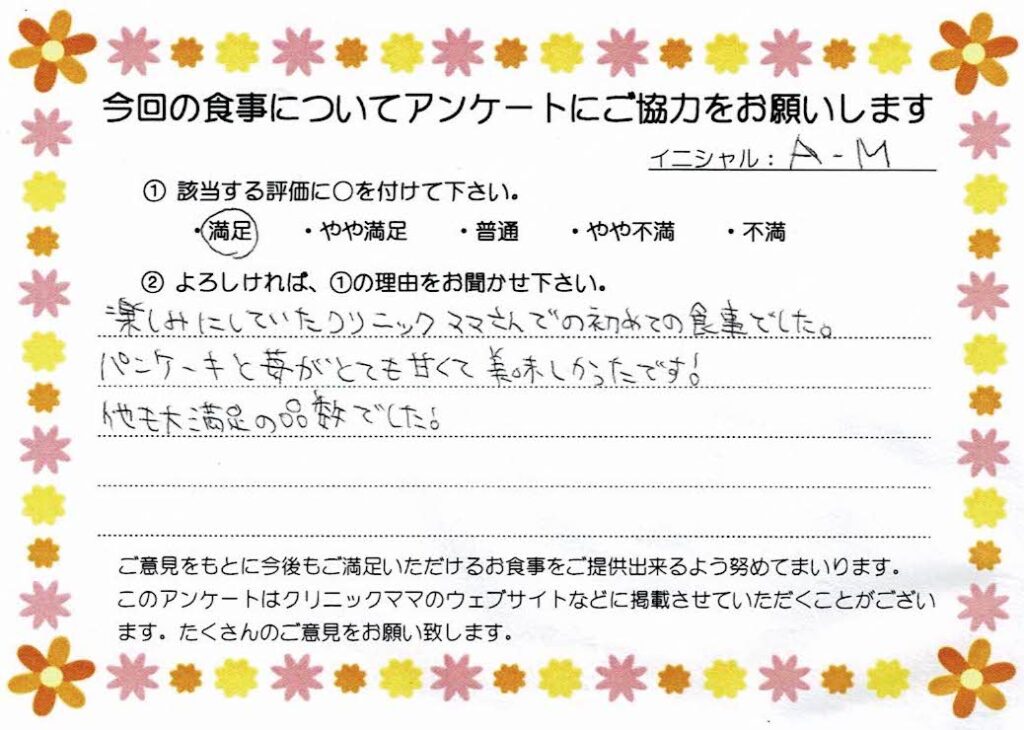 今回の食事についてアンケートにご協力をお願いします
イニシャル： A-M
① 該当する評価に〇を付けて下さい。
・満足 ・やや満足 ・普通 ・やや不満 ・不満
② よろしければ、①の理由をお聞かせ下さい。
楽しみにしていたクリニックママさんでの初めての食事でした。
パンケーキと苺がとても甘くて美味しかったです！
他も大満足の品数でした！
ご意見をもとに今後もご満足いただけるお食事をご提供出来るよう努めてまいります。
このアンケートはクリニックママのウェブサイトなどに掲載させていただくことがござい
ます。たくさんのご意見をお願い致します。